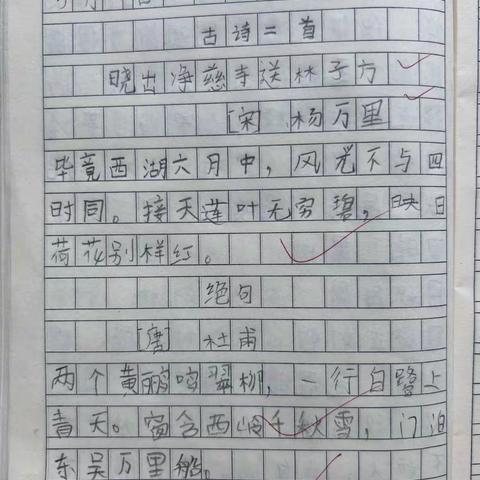 古诗二首
晓出净慈寺送林子方
[宋] 杨万里
毕竟西湖六月中，风光不与四
时同。接天莲叶无穷碧，映日
荷花别样红。
绝句
[唐] 杜甫
两个黄鹂鸣翠柳，一行白鹭上
青天。窗含西岭千秋雪，门泊
东吴万里船。